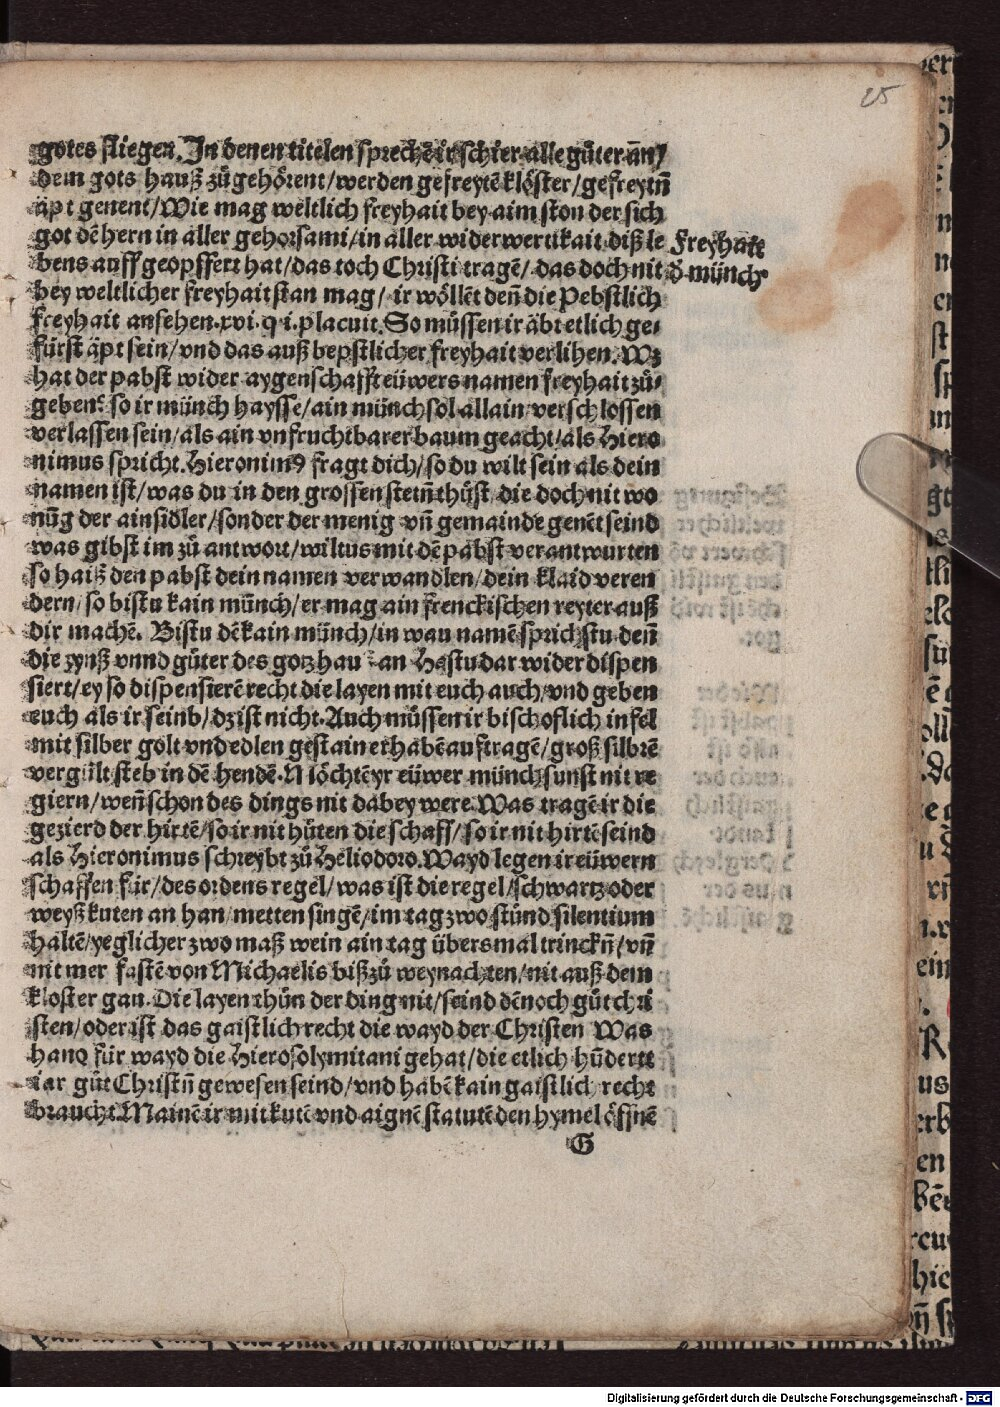 25
gotes fliegen. In denen titelen sprechē ir schier alle güter an̄/
dem gots hauß zů gehörent/werden gefreytē klöster/gefreytn̄
äpt genent/Wie mag weltlich freyhait bey aim ston der sich
got dē hern in aller gehorsami/in aller widerwertikait diß le
bens auff geopffert hat/das ioch Christi tragē/das doch nit
bey weltlicher freyhait stan mag/ir wöllēt den̄ die Pebstlich
freyhait ansehen.xvi.q.i.placuit. So müssen ir äbt etlich ge/
fürst äpt sein/vnd das auß bepstlicher freyhait verlihen. Wz
hat der pabst wider aygenschafft eüwers namen freyhait zů/
geben? so ir münch haysse/ain münch sol allain verschlossen
verlassen sein/als ain vnfruchtbarer baum geacht/als Hiero
nimus spricht. Hieronimꝰ fragt dich/so du wilt sein als dein
namen ist/was du in den grossen stetn̄ thüst/die doch nit wo
nūg der ainsidler/sonder der menig vn̄ gemainde genēt seind
was gibst im zů antwort/wiltus mit dē pabst verantwurten
so haiß den pabst dein namen verwandlen/dein klaid veren
dern/so bistu kain mūnch/er mag ain frenckischen reyter auß
dir machē. Bistu dē kain münch/in wau namē sprichstu den̄
die zynß vnnd güter des gotzhauß an Hastu dar wider dispen
siert/ey so dispensierē recht die layen mit euch auch/vnd geben
euch als ir seind/dz ist nicht. Auch müssen ir bischoflich infel
mit silber golt vnd edlen gestain erhabē auftragē/groß silbrē
vergült steb in dē hendē. Möchtē yr eüwer münch sunst nit re
giern/wen̄ schon des dings nit dabey were. Was tragē ir die
gezierd der hirtē/so ir nit hüten die schaff/so ir nit hirtē seind
als Hieronimus schreybt zů Heliodoro. Wayd legen ir eüwern
schaffen für/des ordens regel/was ist die regel/schwartz oder
weyß kuten an han/metten singē/im tag zwo stünd silentium
haltē/yeglicher zwo maß wein ain tag übers mal trinckn̄/vn̄
nit mer fastē von Michaelis biß zů weynachten/nit auß dem
kloster gan. Die layen thün der ding nit/seind dēnoch güt chri
sten/oder ist das gaistlich recht die wayd der Christen Was
hand für wayd die Hierosolymitani gehat/die etlich hūdertt
iar güt Christn̄ gewesen seind/vnd habē kain gaistlich recht
braucht. Mainē ir mit kutē vnd aignē statutē den hymel öffnē
G
Freyhait
d̄ münch
Digitalisierung gefördert durch die Deutsche Forschungsgemeinschaft - DFG